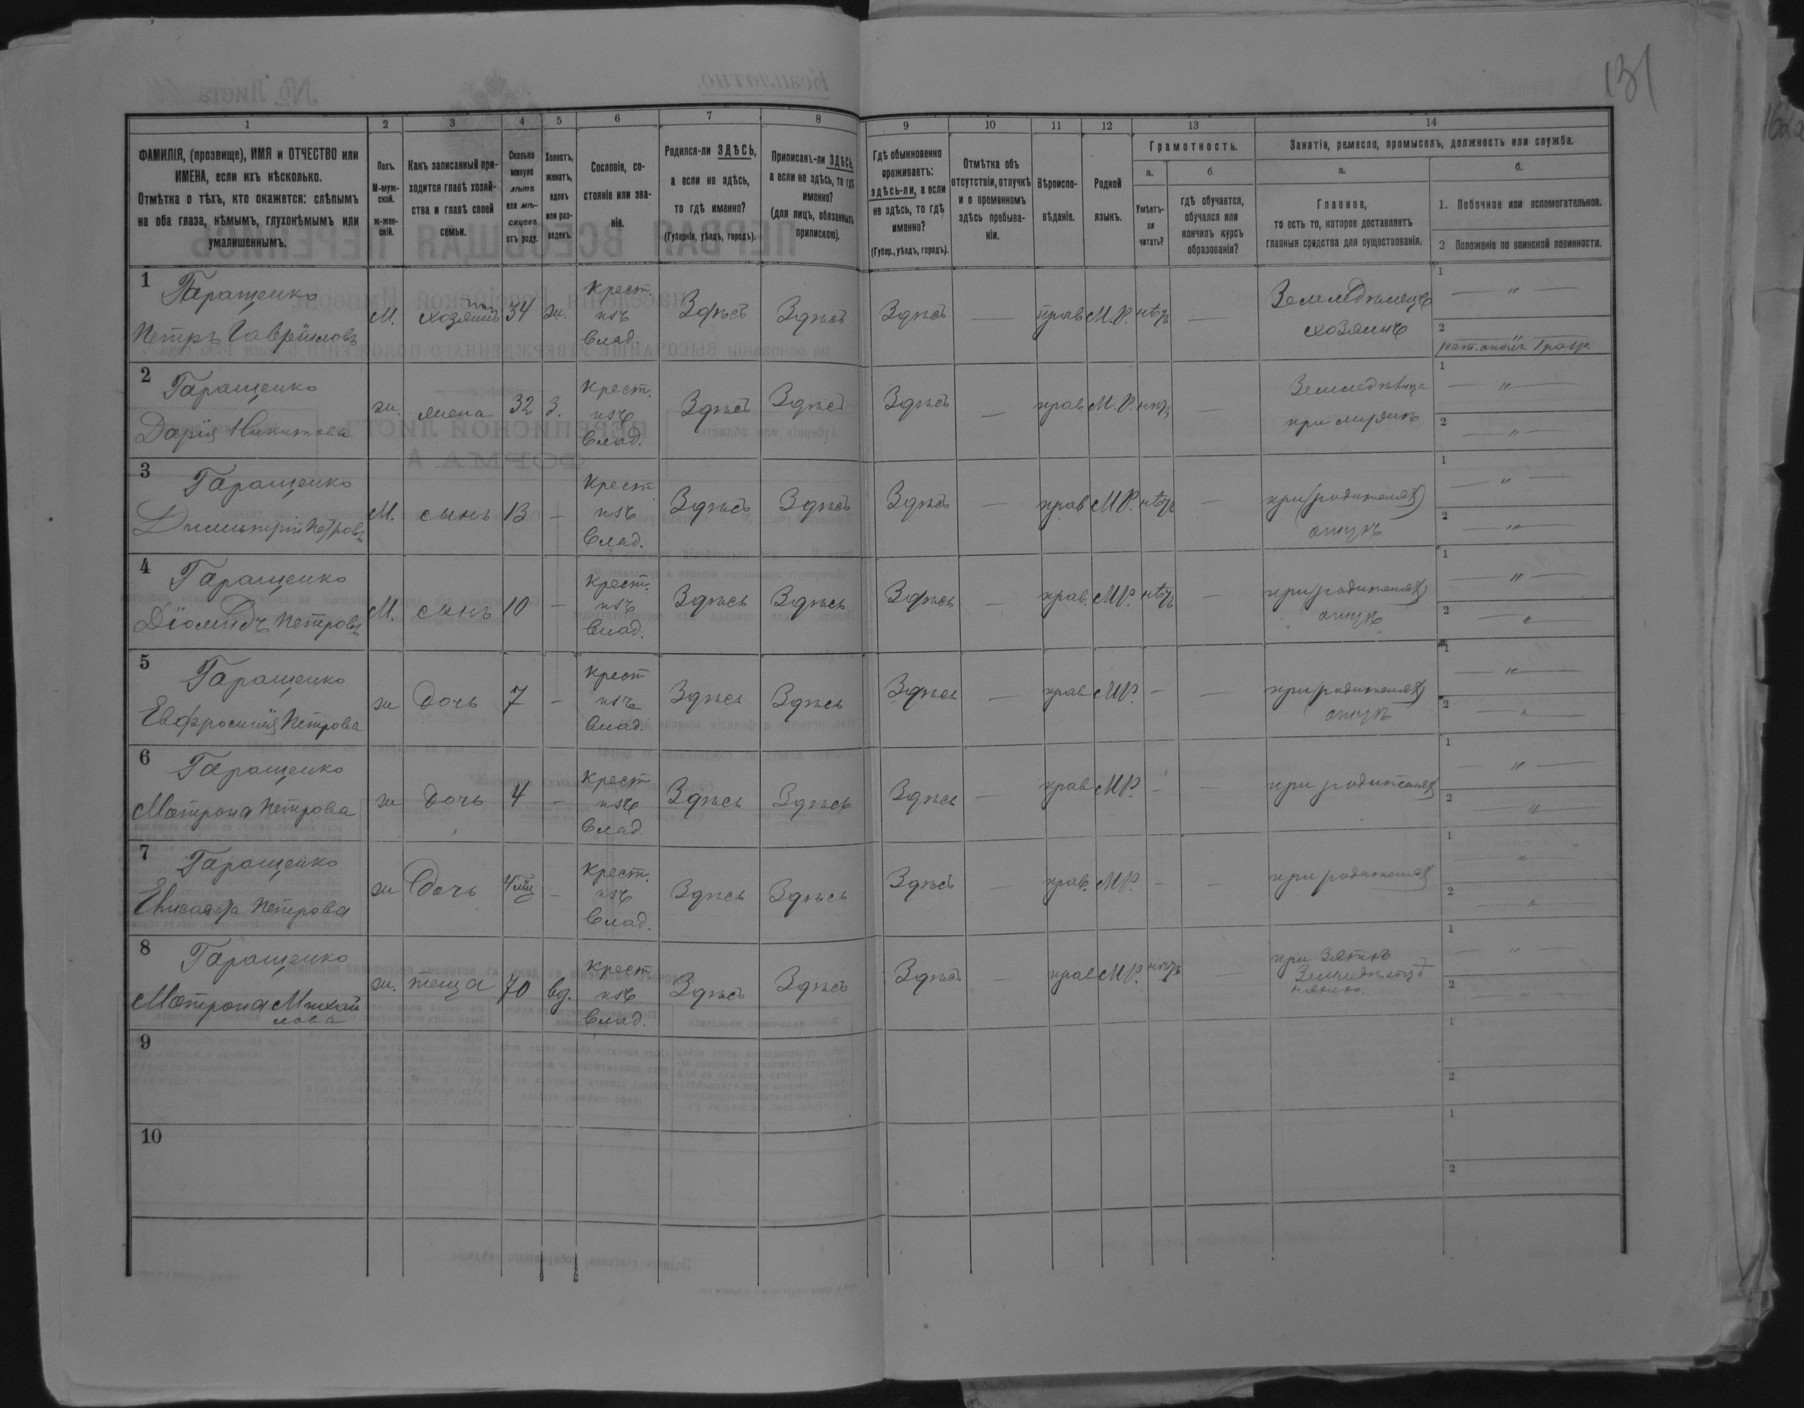 131
1 2 3 4 5 6 7 8 9 10 11 12 13 14
ФАМИЛІЯ, (прозвище), ИМЯ и ОТЧЕСТВО или
ИМЕНА, если ихъ нѣсколько.
Отмѣтка о тѣхъ, кто окажется: слѣпымъ
на оба глаза, нѣмымъ, глухонѣмымъ или
умалишеннымъ.
Полъ.
М-муж-
ской.
ж-жен-
скій.
Какъ записанный при-
ходится главѣ хозяй-
ства и главѣ своей
семьи.
Сколько
минуло
лѣтъ
или мѣ-
сяцевъ
отъ роду.
Холостъ,
женатъ,
вдовъ
или раз-
веденъ.
Сословіе, со-
стояніе или зва-
ніе.
Родился-ли ЗДѢСЬ,
а если не здѣсь,
то гдѣ именно?
(Губернія, уѣздъ, городъ).
Приписанъ-ли ЗДѢСЬ,
а если не здѣсь, то гдѣ
именно?
(для лицъ, обязанныхъ
припискою).
Гдѣ обыкновенно
проживаетъ:
здѣсь-ли, а если
не здѣсь, то гдѣ
именно?
(Губер., уѣздъ, городъ).
Отмѣтка объ
отсутствіи, отлучкѣ
и о временномъ
здѣсь пребыва-
ніи.
Вѣроиспо-
вѣданіе.
Родной
языкъ.
Грамотность.
а.
Умѣетъ-
ли
читать?
б.
гдѣ обучается,
обучался или
кончилъ курсъ
образованія?
Занятіе, ремесло, промыселъ, должность или служба.
а.
Главное,
то есть то, которое доставляетъ
главныя средства для существованія.
б.
1. Побочное или вспомогательное.
2 Положеніе по воинской повинности.
1 Гаращенко
Петръ Гаврииловъ
М. хозяинъ 34 ж. Крест. изъ Влад. Здѣсь Здѣсь Здѣсь — прав М.Р. нѣтъ — Земледѣлецъ
хозяинъ
1 — " —
2
2 Гаращенко
Дарія Никитова
ж. жена 32 З. Крест. изъ Влад. Здѣсь Здѣсь Здѣсь — прав М.Р. нѣтъ —
1 — " —
2 — " —
3 Гаращенко
Димитрій Петровъ
М. сынъ 13 — Крест. изъ Влад. Здѣсь Здѣсь Здѣсь — прав М.Р. нѣтъ — при родителяхъ
1 — " —
2 — " —
4 Гаращенко
Діомидъ Петровъ
М. сынъ 10 — Крест. изъ Влад. Здѣсь Здѣсь Здѣсь — прав. М.Р. нѣтъ — при родителяхъ
1 — " —
2 — " —
5 Гаращенко
Евфросинія Петрова
ж дочь 7 — Крест изъ Влад. Здѣсь Здѣсь Здѣсь — прав М.Р. — — при родителяхъ
1 — " —
2 — " —
6 Гаращенко
Матрона Петрова
ж дочь 4 — Крест изъ Влад. Здѣсь Здѣсь Здѣсь — прав М.Р. — — при родителяхъ
1 — " —
2 — " —
7 Гаращенко
Елисавефа Петрова
ж Дочь — Крест. изъ Влад. Здѣсь Здѣсь Здѣсь — прав. М.Р. — — при родителяхъ
1 — " —
2 — " —
8 Гаращенко
Матрона Михай
лова
ж. теща 70 вд. Крест изъ Влад. Здѣсь Здѣсь Здѣсь — прав М.Р. нѣтъ — при зятѣ
1 — " —
2 — " —
9
1
2
10
1
2